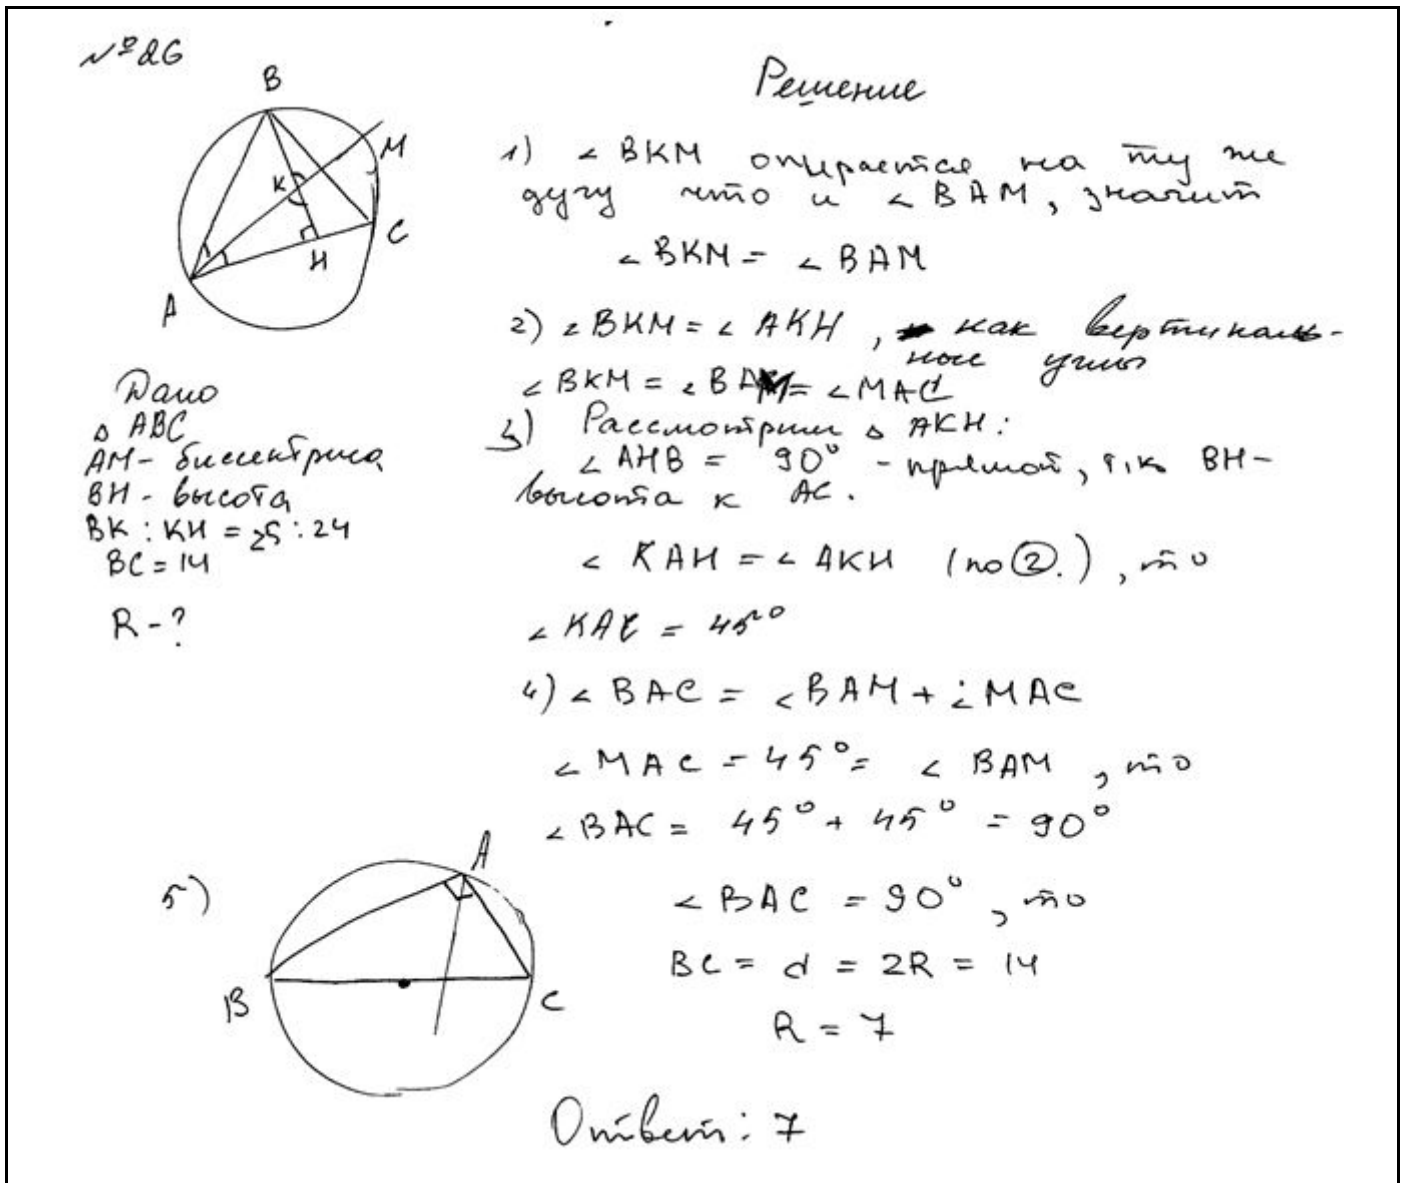 №26
B
M
K
C
H
A
Дано
△ ABC
AM - биссектриса
BH - высота
BK : KH = 25 : 24
BC = 14
R - ?
Решение
1) ∠ BKM опирается на ту же
дугу что и ∠ BAM, значит
∠ BKM = ∠ BAM
2) ∠ BKM = ∠ AKH, как вертикаль-
ные углы
∠ BKM = ∠ BAM = ∠ MAC
3) Рассмотрим △ AKH:
∠ AHB = 90° - прямой, т.к BH-
высота к AC.
∠ KAH = ∠ AKH (по ②.), то
∠ KAC = 45°
4) ∠ BAC = ∠ BAM + ∠ MAC
∠ MAC = 45° = ∠ BAM, то
∠ BAC = 45° + 45° = 90°
5)
A
B
C
∠ BAC = 90°, то
BC = d = 2R = 14
R = 7
Ответ: 7